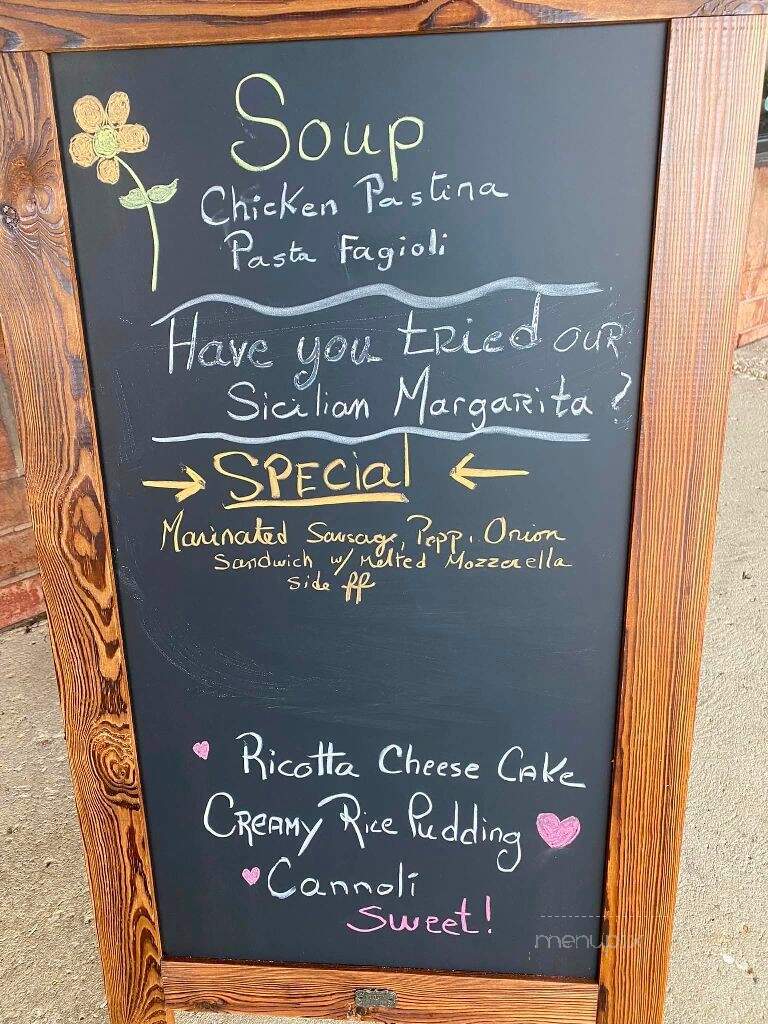 Soup
Chicken Pastina
Pasta Fagioli
Have you tried our
Sicilian Margarita?
→ Special ←
Marinated Sausage, Pepp. Onion
Sandwich w/ Melted Mozzarella
side ff
Ricotta Cheese Cake
Creamy Rice Pudding
Cannoli
Sweet!
menupix